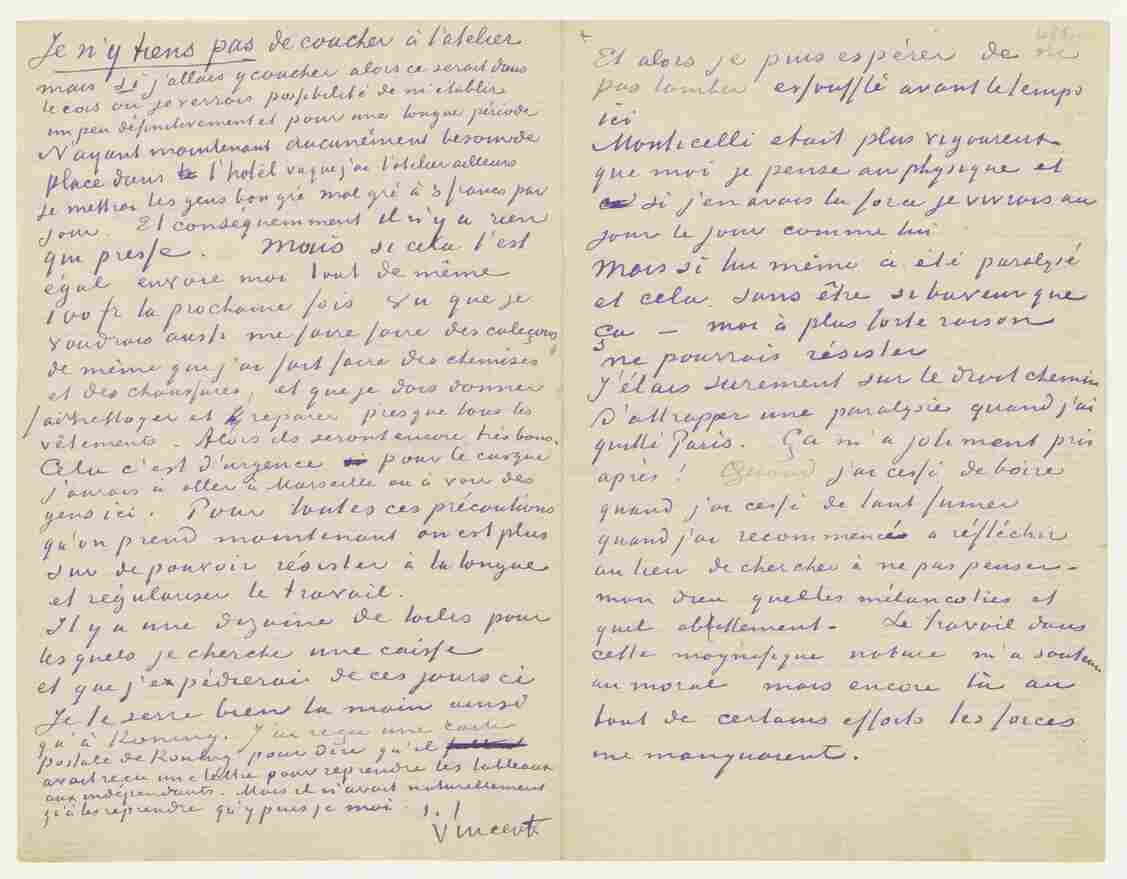 Je n'y tiens pas de coucher à l'atelier
mais si j'allais y coucher alors ce serait dans
le cas où je verrais possibilité de m'établir
un peu définitivement et pour une longue période
N'ayant maintenant aucunément besoin de
place dans l'hotel vu que j'ai l'atelier ailleurs
je mettrai les gens bon gré mal gré à 3 francs par
jour. Et conséquemment il n'y a rien
qui presse. Mais si cela t'est
égal envoie moi tout de même
100 fr la prochaine fois vu que je
voudrais aussi me faire faire des caleçons
de même que j'ai fait faire des chemises
et des chaussures, et que je dois donner
à nettoyer et réparer presque tous les
vêtements. Alors ils seront encore très bons.
Cela c'est d'urgence pour le cas que
j'aurais à aller à Marseille ou à voir des
gens ici. Pour toutes ces précautions
qu'on prend maintenant on est plus
sur de pouvoir résister à la longue
et régulariser le travail.
Il y a une dizaine de toiles pour
lesquels je cherche une caisse
et que j'expédierai de ces jours ci
Je te serre bien la main ainsi
qu'à Koning. J'ai reçu une carte
postale de Koning pour dire qu'il
avait reçu une lettre pour reprendre les tableaux
aux indépendants. Mais il n'avait naturellement
qu'à les reprendre qu'y puis je moi.
t. t.
Vincent
Et alors je puis espérer de ne
pas tomber essoufflé avant le temps
ici
Monticelli etait plus vigoureux
que moi je pense au physique et
si j'en avais la force je vivrais au
jour le jour comme lui
Mais si lui même a été paralysé
et cela sans être si buveur que
ça – moi à plus forte raison
ne pourrais résister
J'étais surement sur le droit chemin
d'attrapper une paralysie quand j'ai
quitté Paris. Ça m'a joliment pris
après! Quand j'ai cessé de boire
quand j'ai cessé de tant fumer
quand j'ai recommencé a réflechir
au lieu de chercher à ne pas penser –
mon dieu quelles mélancolies et
quel abattement – Le travail dans
cette magnifique nature m'a soutenu
au moral mais encore là au
bout de certains efforts les forces
me manquaient.